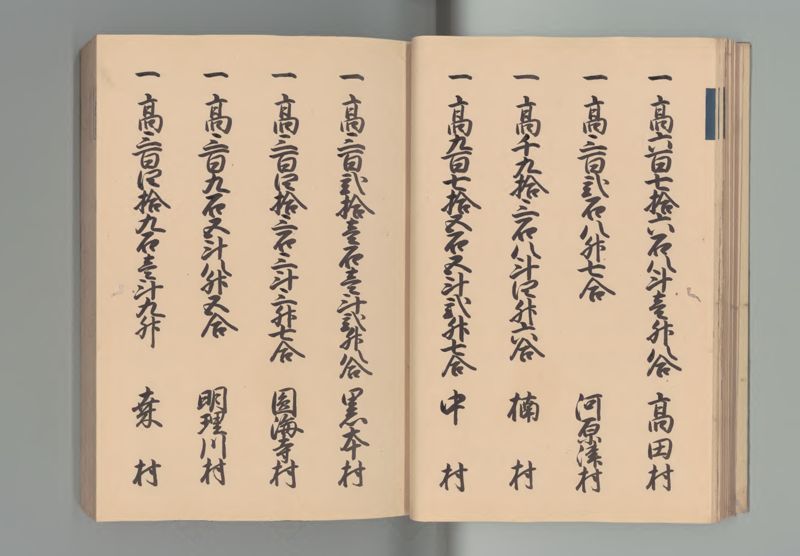 一 高六百七拾六石八斗壱升八合 高田村
一 高三百弐石八升七合 河原津村
一 高千九拾三石八斗四升六合 楠村
一 高九百七拾五石五斗弐升七合 中村
一 高三百弐拾壱石壱斗弐升八合 黒本村
一 高三百四拾三石三斗三升七合 圓海寺村
一 高三百九石五斗八升五合 明理川村
一 高三百四拾九石壱斗九升 桒村